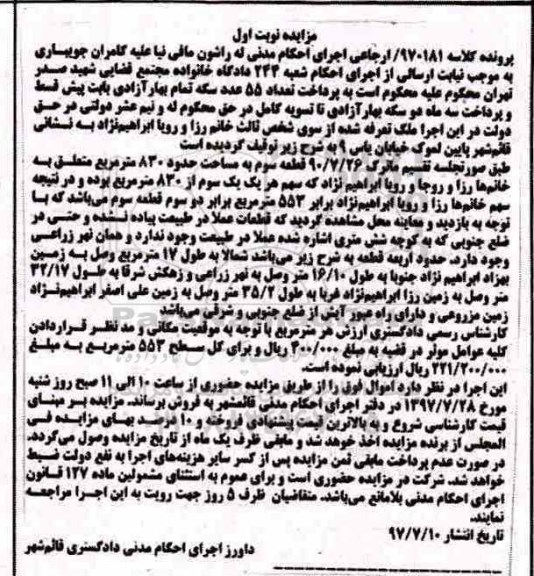 مزایده نوبت اول
پرونده کلاسه ۹۷۰۱۸۱/ ارجاعی اجرای احکام مدنی له راشون مافی نیا علیه کامران جویباری
به موجب نیابت ارسالی از اجرای احکام شعبه ۲۴۴ دادگاه خانواده مجتمع قضایی شهید صدر
تهران محکوم علیه محکوم است به پرداخت تعداد ۵۵ عدد سکه تمام بهار آزادی بابت پیش قسط
و پرداخت سه ماه دو سکه بهار آزادی تا تسویه کامل در حق محکوم له و نیم عشر دولتی در حق
دولت در این اجرا ملک تعرفه شده از سوی شخص ثالث خانم رزا و رویا ابراهیم‌نژاد به نشانی
قائم‌شهر پایین لموک خیابان یاس ۹ به شرح زیر توقیف گردیده است
طبق صورتجلسه تقسیم ماترک ۹۰/۷/۲۶ قطعه سوم به مساحت حدود ۸۳۰ مترمربع متعلق به
خانم‌ها رزا و روجا و رویا ابراهیم نژاد که سهم هر یک یک سوم از ۸۳۰ مترمربع بوده و در نتیجه
سهم خانم‌ها رزا و رویا ابراهیم‌نژاد برابر ۵۵۳ مترمربع برابر دو سوم قطعه سوم می‌باشد که با
توجه به بازدید و معاینه محل مشاهده گردید که قطعات عملا در طبیعت پیاده نشده و حتی در
ضلع جنوبی که به کوچه شش متری اشاره شده عملا در طبیعت وجود ندارد و همان نهر زراعی
وجود دارد. حدود اربعه قطعه به شرح زیر می‌باشد شمالا به طول ۱۷ مترمربع وصل به زمین
بهزاد ابراهیم نژاد جنوبا به طول ۱۶/۱۰ متر وصل به نهر زراعی و زهکش شرقا به طول ۳۲/۱۷
متر وصل به زمین رزا ابراهیم‌نژاد غربا به طول ۳۵/۲ متر وصل به زمین علی اصغر ابراهیم‌نژاد
زمین مزروعی و دارای راه عبور آیش از ضلع جنوبی و شرقی می‌باشد
کارشناس رسمی دادگستری ارزش هر مترمربع با توجه به موقعیت مکانی و مد نظر قرار دادن
کلیه عوامل موثر در قضیه به مبلغ ۴۰۰/۰۰۰ ریال و برای کل سطح ۵۵۳ مترمربع به مبلغ
۲۲۱/۲۰۰/۰۰۰ ریال ارزیابی نموده است.
این اجرا در نظر دارد اموال فوق را از طریق مزایده حضوری از ساعت ۱۰ الی ۱۱ صبح روز شنبه
مورخ ۱۳۹۷/۷/۲۸ در دفتر اجرای احکام مدنی قائمشهر به فروش برساند. مزایده بر مبنای
قیمت کارشناسی شروع و به بالاترین قیمت پیشنهادی فروخته و ۱۰ درصد بهای مزایده فی
المجلس از برنده مزایده اخذ خواهد شد و مابقی ظرف یک ماه از تاریخ مزایده وصول می‌گردد.
در صورت عدم پرداخت مابقی ثمن مزایده پس از کسر سایر هزینه‌های اجرا به نفع دولت ضبط
خواهد شد. شرکت در مزایده حضوری است و برای عموم به استثنای مشمولین ماده ۱۲۷ قانون
اجرای احکام مدنی بلامانع می‌باشد. متقاضیان ظرف ۵ روز جهت رویت به این اجرا مراجعه
نمایند.
تاریخ انتشار ۹۷/۷/۱۰
داورز اجرای احکام مدنی دادگستری قائم‌شهر